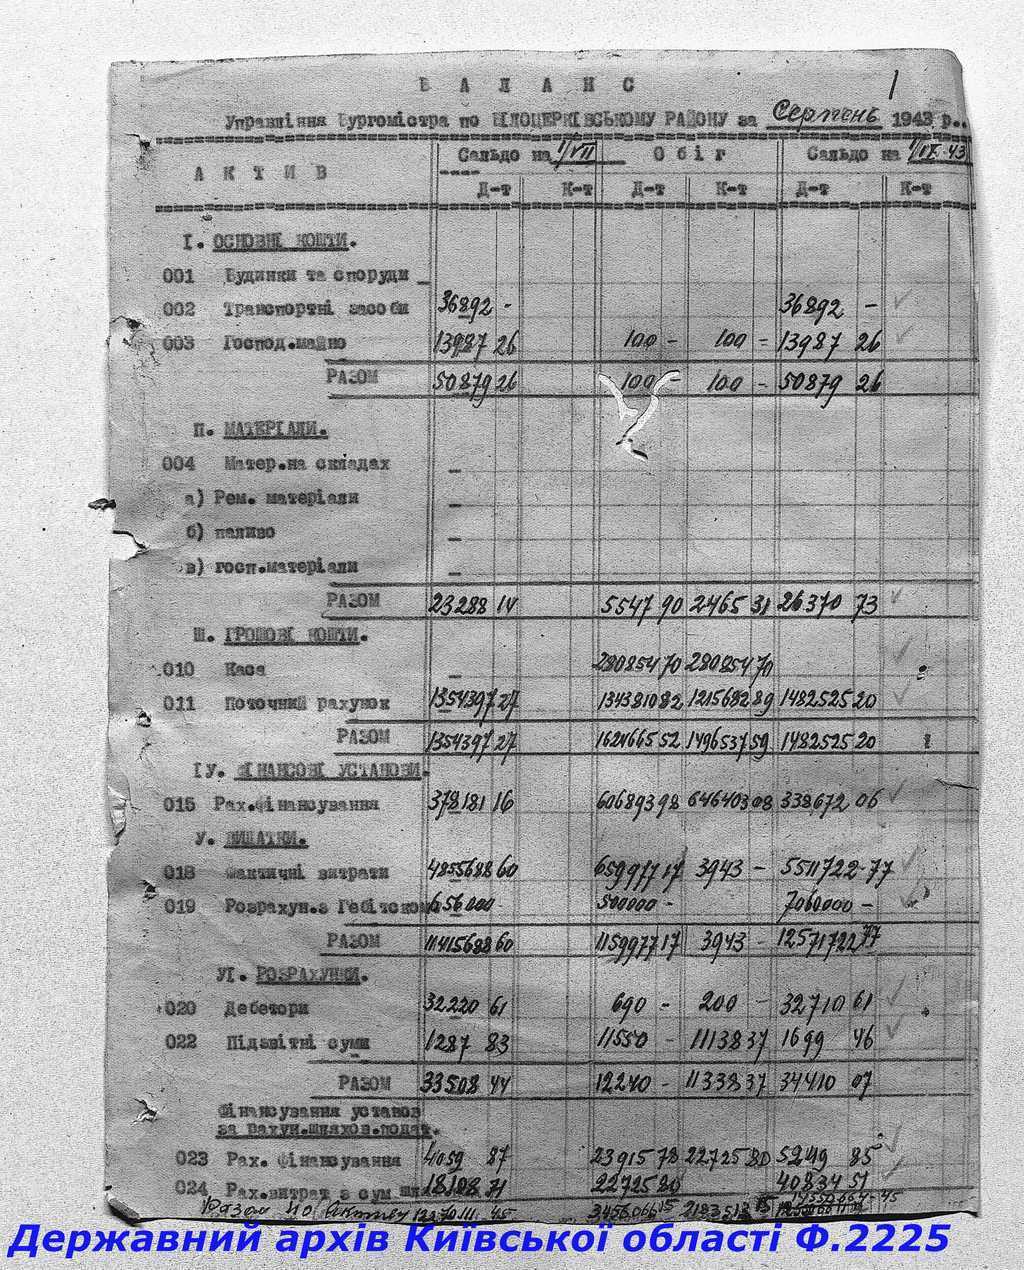 1
Б А Л А Н С
Управління Бургомістра по БІЛОЦЕРКІВСЬКОМУ РАЙОНУ за Серпень 1943 р.
А К Т И В Сальдо на 1/VII О б і г Сальдо на 1/IX 43
Д-т К-т Д-т К-т Д-т К-т
I. ОСНОВНІ КОШТИ.
001 Будинки та споруди -
002 Транспортні засоби 36892 - 36892 -
003 Господ.майно 13987 26 100 - 100 - 13987 26
РАЗОМ 50879 26 100 - 100 - 50879 26
П. МАТЕРІАЛИ.
004 Матер.на складах -
а) Рем. матеріали -
б) паливо -
в) госп.матеріали -
РАЗОМ 23288 14 5547 90 2465 31 26370 73
Ш. ГРОШОВІ КОШТИ.
010 Каса - 280854 70 280854 70
011 Поточний рахунок 1354397 27 1343810 82 1215682 89 1482525 20
РАЗОМ 1354397 27 1624665 52 1496537 59 1482525 20
ІУ. ФІНАНСОВІ УСТАНОВИ.
015 Рах.фінансування 378181 16 606893 98 646403 08 338672 06
У. ВИДАТКИ.
018 Фактичні витрати 4855688 60 659977 17 3943 - 5511722-77
019 Розрахун.з Гебітском 656000 500000 - 7060000 -
РАЗОМ 11415688 60 1159977 17 3943 - 12571722 77
УІ. РОЗРАХУНКИ.
020 Дебетори 32220 61 690 - 200 - 32710 61
022 Підзвітні суми 1287 83 11550 - 11138 37 1699 46
РАЗОМ 33508 44 12240 - 11338 37 34410 07
Фінансування установ
за рахун.шляхов.подат.
023 Рах. фінансування 4059 87 23915 78 22725 80 5249 85
024 Рах.витрат з сум шл 18108 71 22725 80 40834 51
Разом по активу 45 3456066 15 2183513 15
Державний архів Київської області Ф.2225